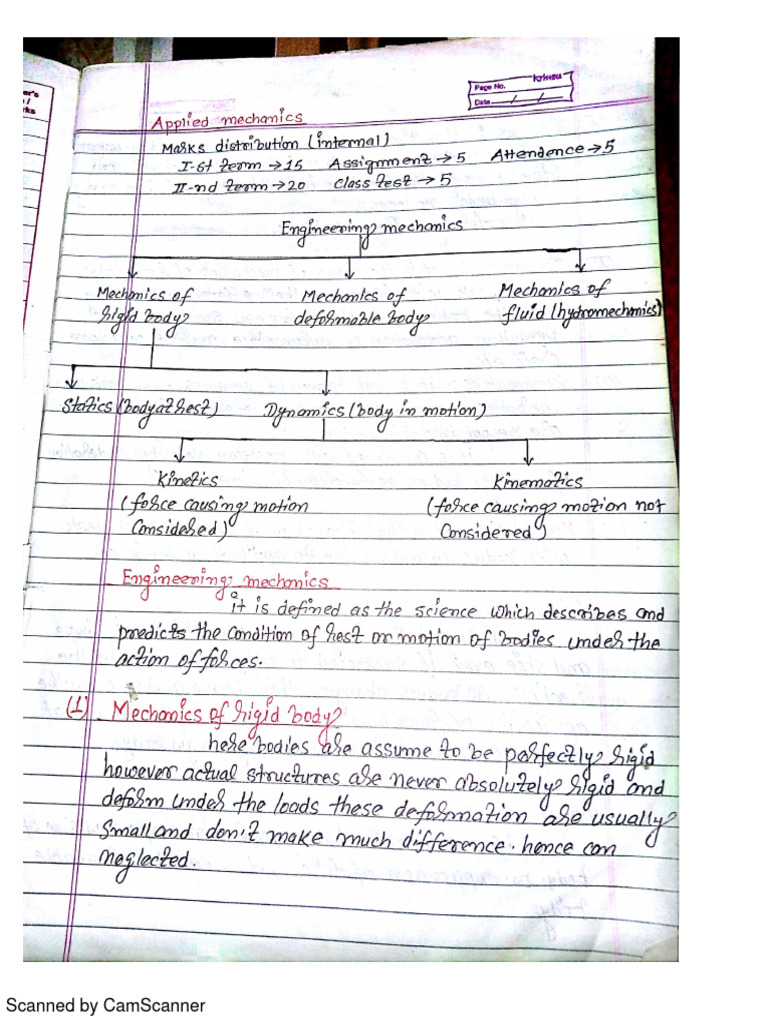 er's
ks
Krishna
Page No.
Date / /
Applied mechanics
Marks distribution (internal)
I-st term → 15 Assignment → 5 Attendence → 5
II-nd term → 20 Class test → 5
Engineering mechanics
Mechanics of Mechanics of Mechanics of
rigid body deformable body fluid (hydromechanics)
Statics (body at rest) Dynamics (body in motion)
Kinetics Kinematics
(force causing motion (force causing motion not
Considered) Considered)
Engineering mechanics
it is defined as the science which describes and
predicts the condition of rest or motion of bodies under the
action of forces.
(1) Mechanics of rigid body
here bodies are assume to be perfectly rigid
however actual structures are never absolutely rigid and
deform under the loads these deformation are usually
small and don't make much difference. hence can
neglected.
Scanned by CamScanner